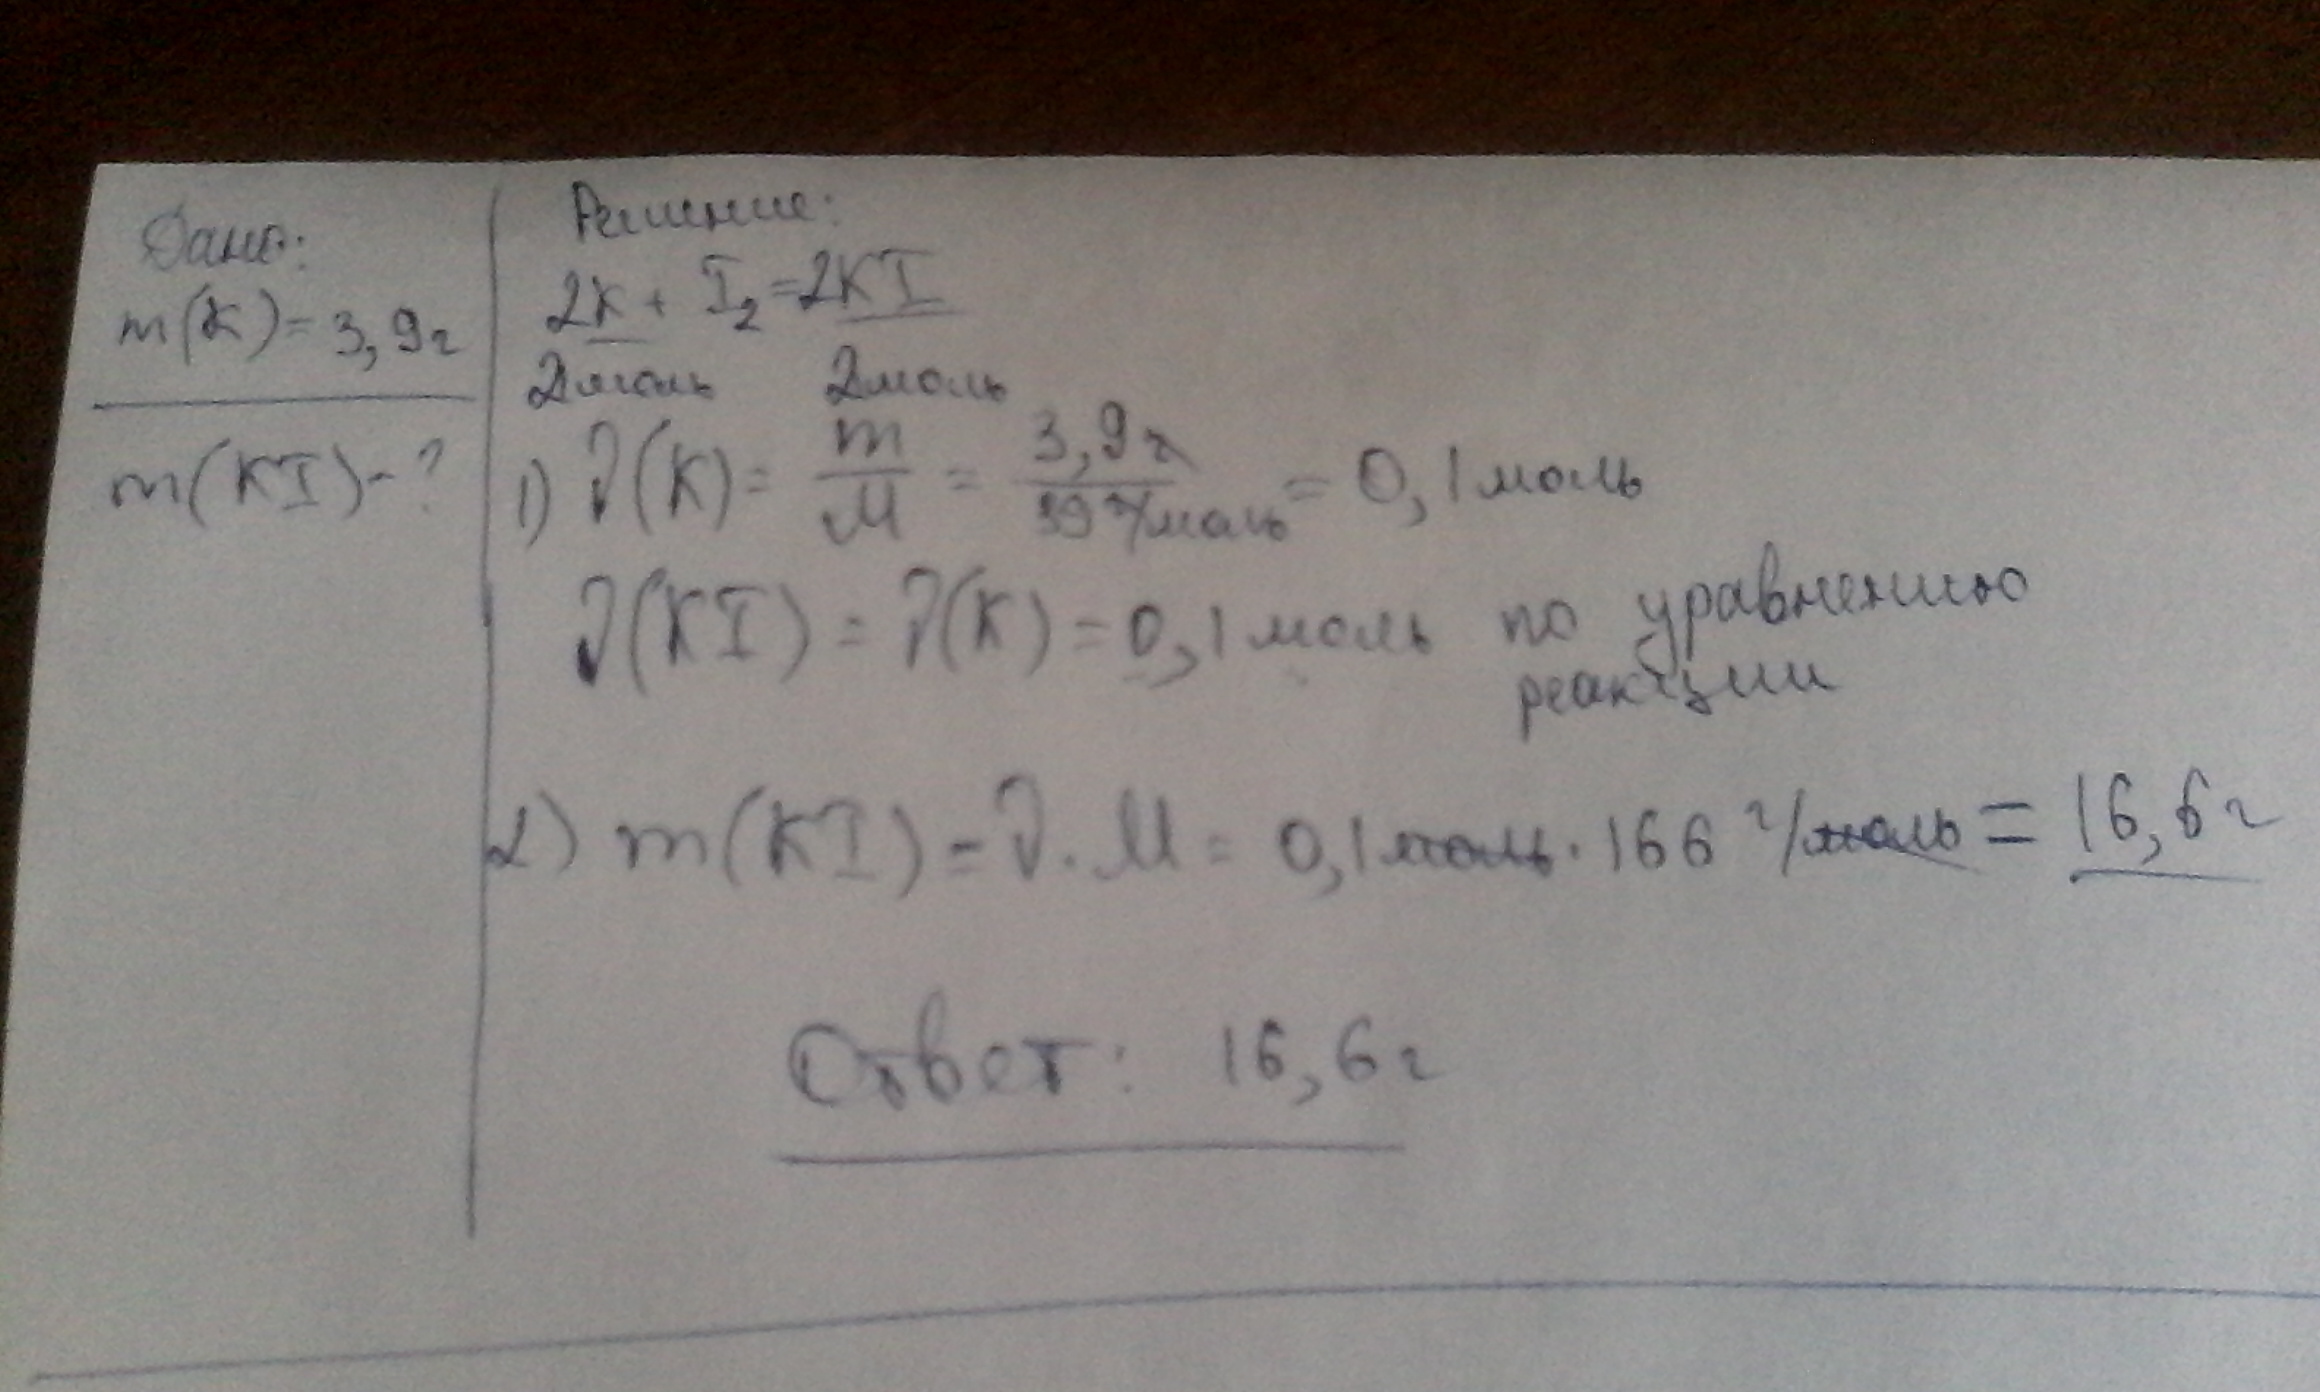 Дано:
m(K)= 3,9г
m(KI)-?
Решение:
2K + I₂=2KI
2моль 2моль
1) ν(K)= m/M = 3,9г/39г/моль = 0,1моль
ν(KI) = ν(K) = 0,1моль по уравнению
реакции
2) m(KI)=ν·M= 0,1моль·166 г/моль = 16,6г
Ответ: 16,6г